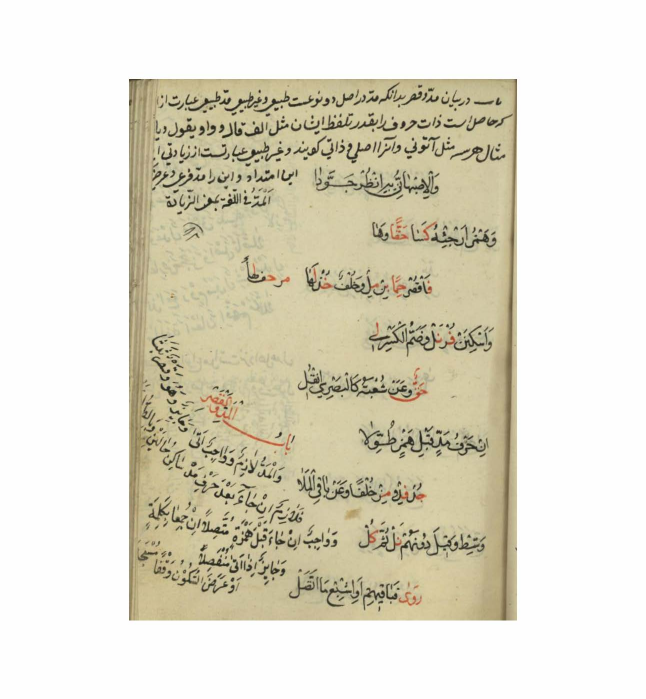 در بیان مد و قصر بدانکه مد در اصل دو نوعست طبیعی و غیر طبیعی مد طبیعی عبارت از
که حاصل است ذات حروف را بقدر تلفظ ایشان مثل الف قال و واو یقول و یا
مثال هر سه مثل آتونی و آنرا اصلی و ذاتی کویند و غیر طبیعی عبارتست از زیادتی
این امتداد و این را مد فرعی
اَلْمَدُّ فی اللّغة بمعنی الزّیادة
وَهَمْزُ أَرْجِئْهُ كَسَا حَقًّا وَهَا
فَاقْصُرْ حِمًا بِنْ مِلْ وَخُلْفٌ خُذْ لَهَا
وَأَسْكِنَنْ فُزْ نَلْ وَضَمُّ الْكَسْرِ لِي
حَقٌّ وَعَنْ شُعْبَةَ كَالْبَصْرِي انْقُلِ
باب المدّ والقصر
إِنْ حَرْفُ مَدٍّ قَبْلَ هَمْزٍ طُوِّلَا
جُدْ فِدْ وَمِزْ خُلْفًا وَعَنْ بَاقِي الْمَلَا
وَسِّطْ وَقِيلَ دُونَهُمْ نَلْ ثُمَّ كِلْ
رَوَى فَبَاقِيهِمْ أَوِ اشْبِعْ مَا اتَّصَلْ
وَالْمَدُّ لَازِمٌ وَوَاجِبٌ أَتَى
وَجَايِزٌ وَهُوَ وَقَصْرٌ ثَبَتَا
فَلَازِمٌ إِنْ جَاءَ بَعْدَ حَرْفِ مَدْ
سَاكِنُ حَالَيْنِ وَبِالطُّولِ
وَوَاجِبٌ إِنْ جَاءَ قَبْلَ هَمْزَةِ
مُتَّصِلًا إِنْ جُمِعَا بِكَلِمَةِ
وَجَايِزٌ إِذَا أَتَى مُنْفَصِلًا
أَوْ عَرَضَ السُّكُونُ وَقْفًا مُسْجَلَا